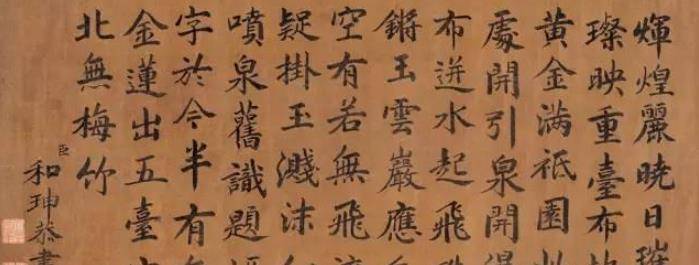 煇煌麗曉日璀
璨映重臺布地
黃金滿祇園
處開引泉開
布迸水起飛
鏘玉雲巖應
空有若無飛流
疑掛玉濺沫
噴泉舊識題
字於今半有
金蓮出五臺
北無梅竹
臣和珅恭書